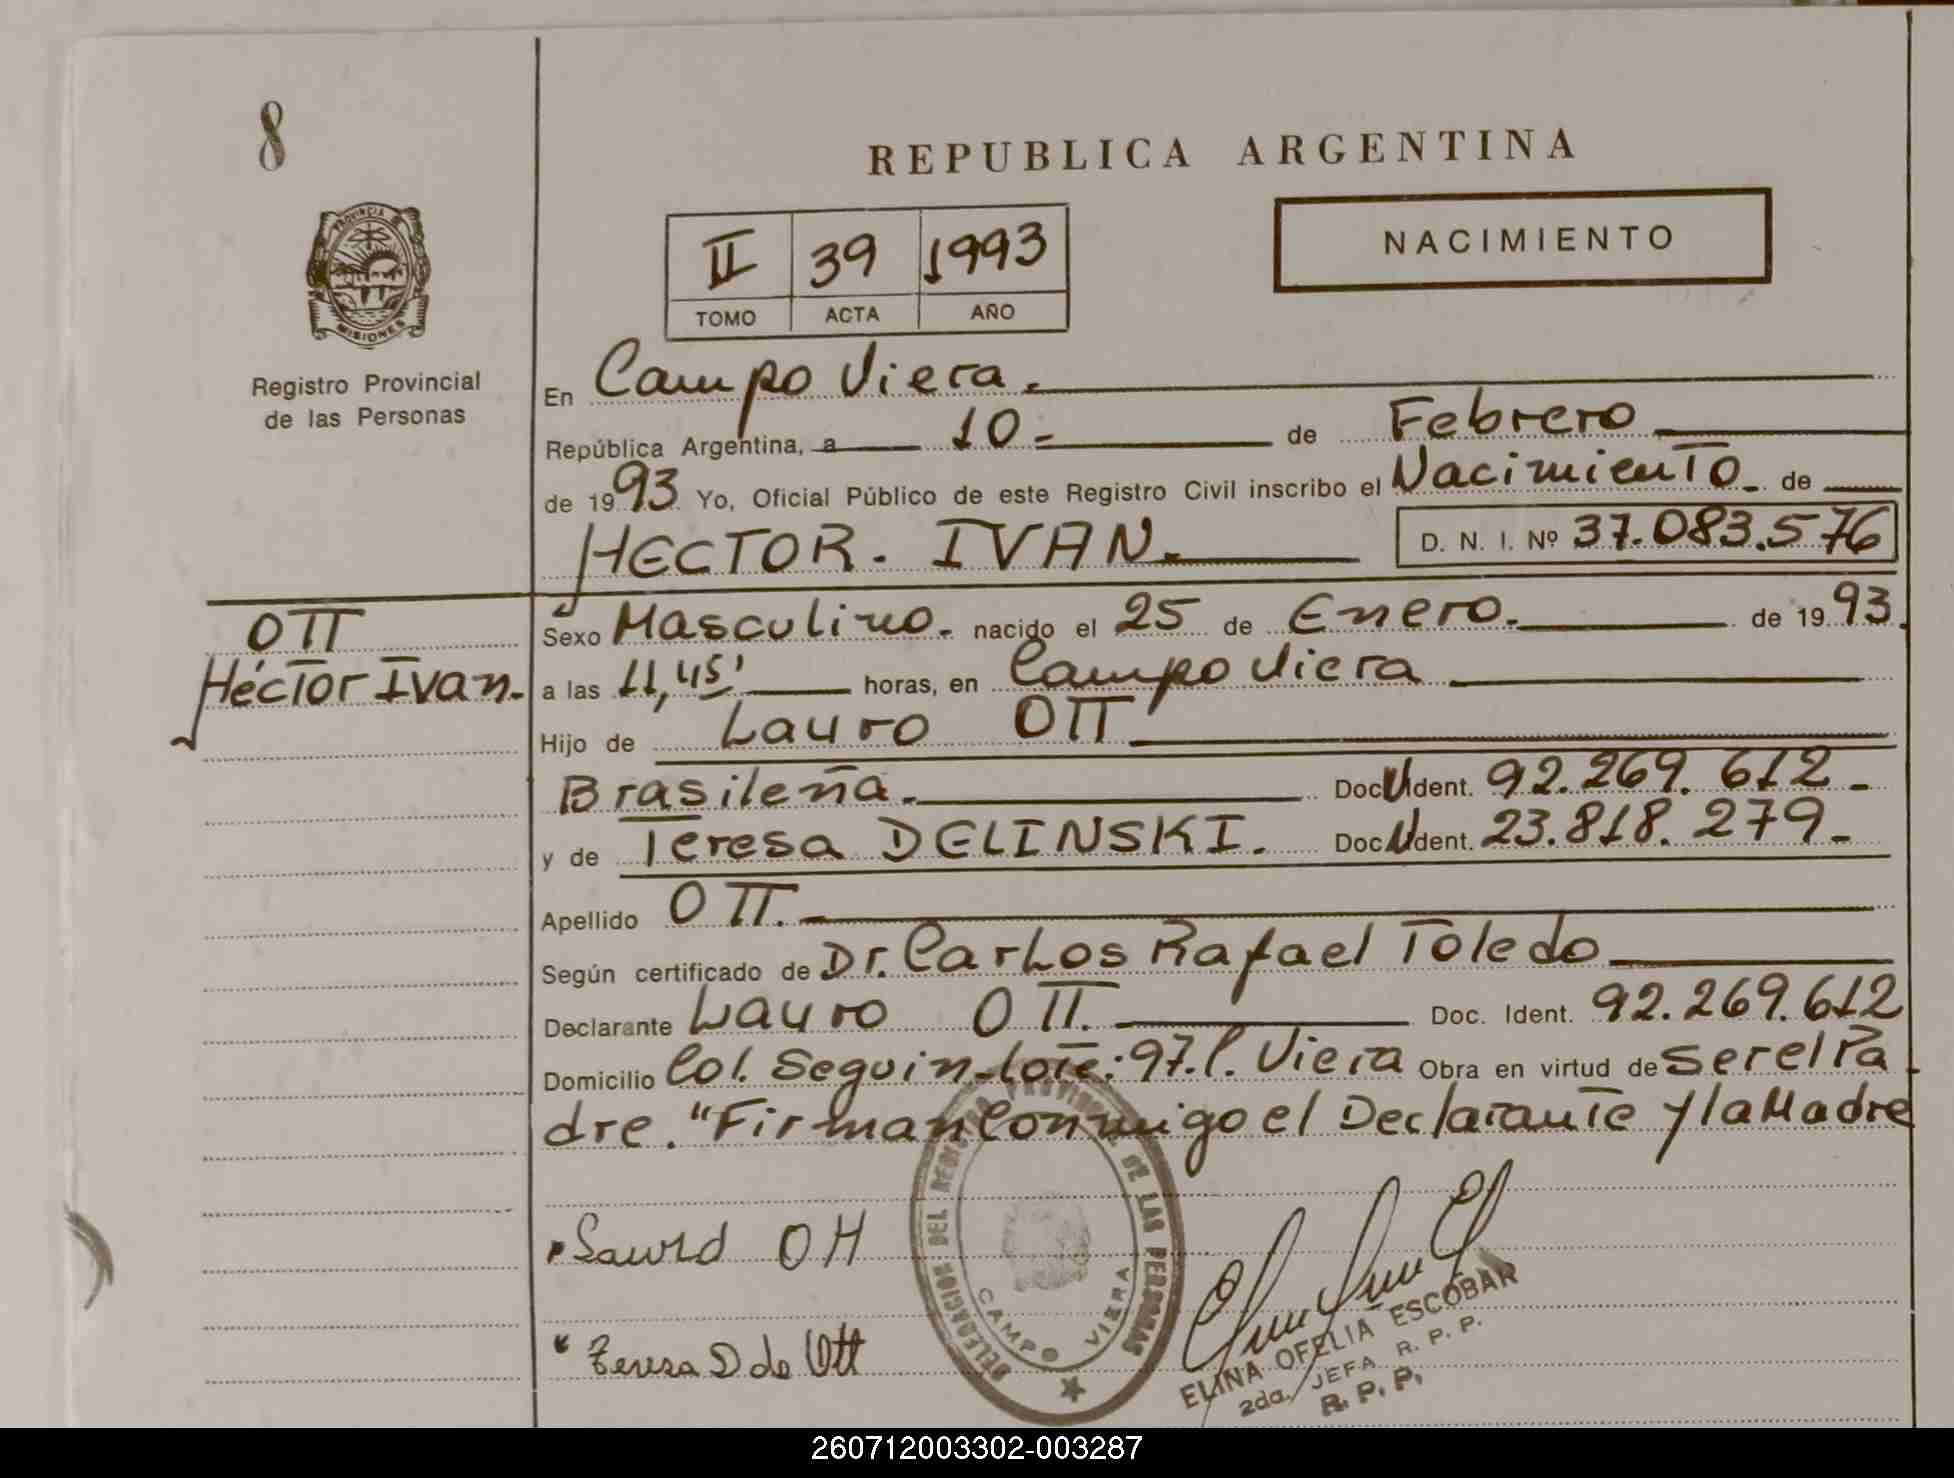 8
REPUBLICA ARGENTINA
NACIMIENTO
II 39 1993
TOMO ACTA AÑO
PROVINCIA DE
MISIONES
Registro Provincial
de las Personas
En Campo Viera.
República Argentina, a 10 = de Febrero
de 1993 Yo, Oficial Público de este Registro Civil inscribo el Nacimiento de
HECTOR. IVAN. D. N. I. Nº 37.083.576
OTT
Héctor Ivan.
Sexo Masculino. nacido el 25 de Enero. de 1993.
a las 11,45' horas, en Campo Viera
Hijo de Lauro OTT
Brasileña. Doc U Ident. 92.269.612-
y de Teresa DELINSKI. Doc U Ident. 23.818.279-
Apellido OTT.-
Según certificado de Dr. Carlos Rafael Toledo
Declarante Lauro OTT. Doc. Ident. 92.269.612
Domicilio Col. Seguin-Lote: 97.C. Viera Obra en virtud de ser el Pa
dre. "Firman Conmigo el Declarante y la Madre
OTT
Teresa D de Ott
DELEGACION DEL REGISTRO PROVINCIAL DE LAS PERSONAS
CAMPO VIERA
ELINA OFELIA ESCOBAR
2da. JEFA R. P. P.
R. P. P.
260712003302-003287